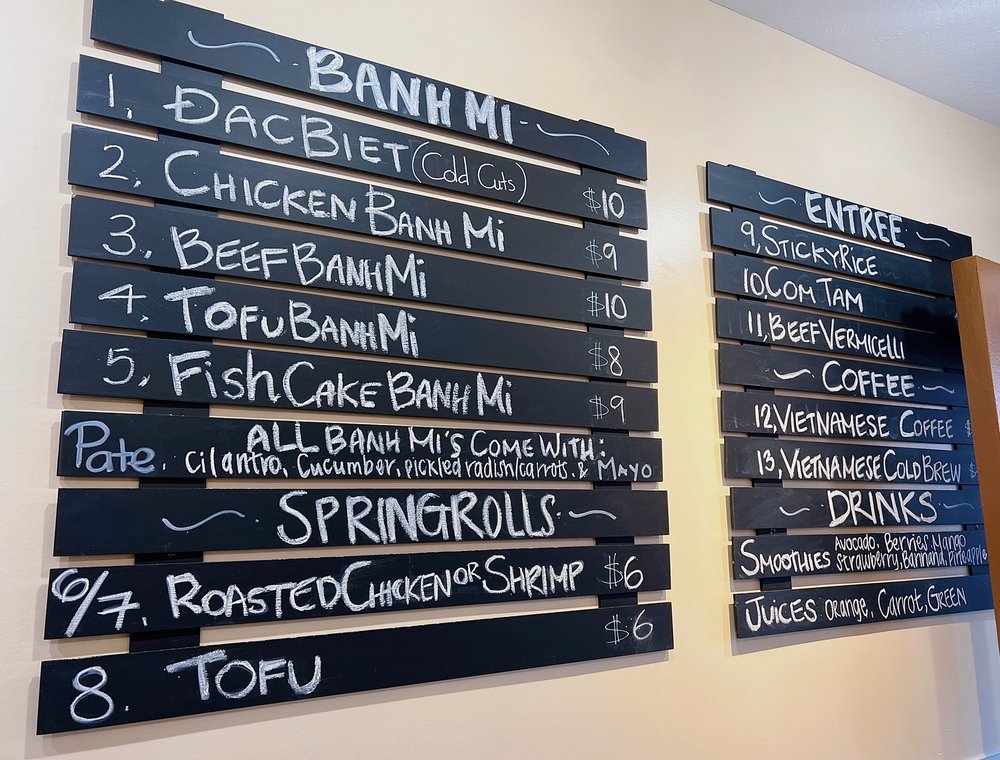 BANH MI
1. ĐAC BIET (Cold Cuts) $10
2. CHICKEN BANH MI $9
3. BEEF BANH MI $10
4. TOFU BANH MI $8
5. FISH CAKE BANH MI $9
ALL BANH MI'S COME WITH:
Pate, cilantro, Cucumber, pickled radish/carrots, & MAYO
SPRINGROLLS
6/7. ROASTED CHICKEN OR SHRIMP $6
8. TOFU $6
ENTREE
9, STICKY RICE
10, COM TAM
11, BEEF VERMICELLI
COFFEE
12, VIETNAMESE COFFEE $
13, VIETNAMESE COLD BREW $
DRINKS
SMOOTHIES Avocado, Berries, Mango
Strawberry, Bannana, Pineapple
JUICES orange, Carrot, GREEN